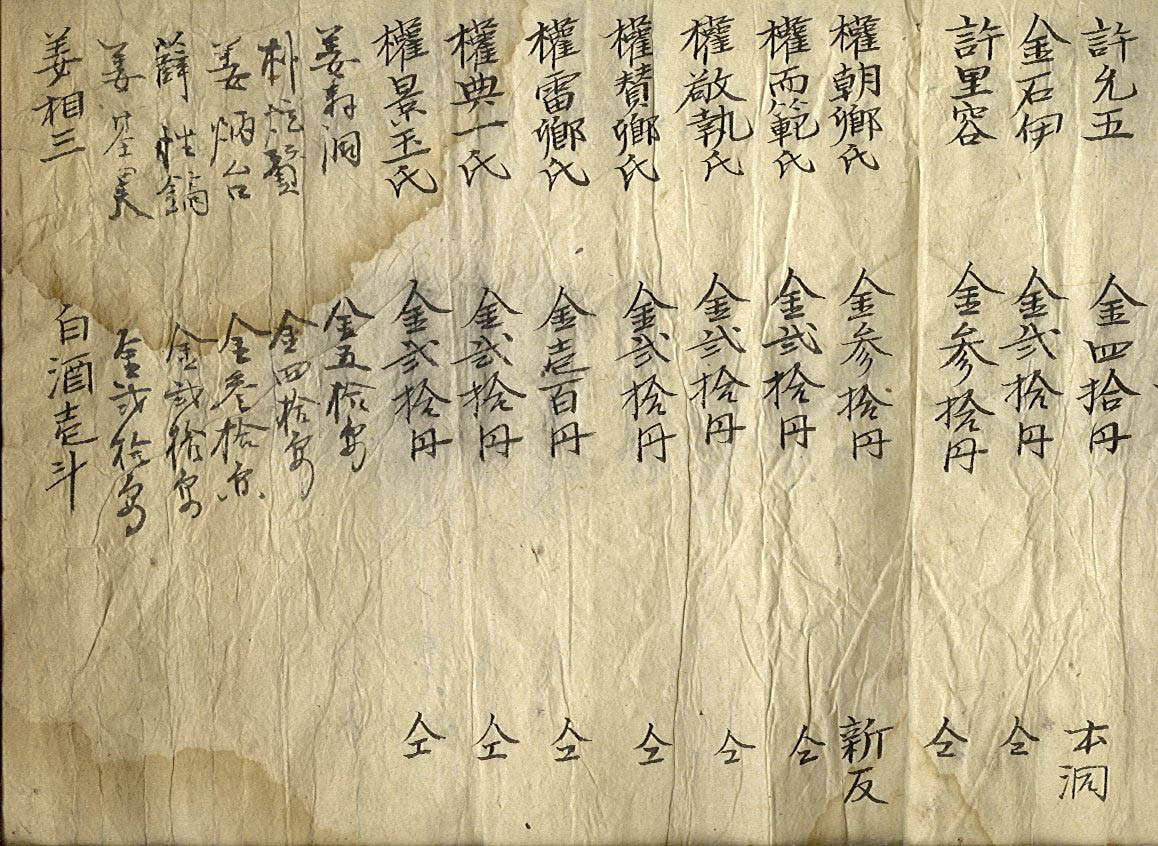 許允五 金四拾円 本洞
金石伊 金弐拾円 仝
許里容 金参拾円 仝
權朝鄉氏 金参拾円 新反
權而範氏 金弐拾円 仝
權敬執氏 金弐拾円 仝
權贊鄉氏 金弐拾円 仝
權雷鄉氏 金壱百円 仝
權典一氏 金弐拾円 仝
權景玉氏 金弐拾円 仝
姜 洞 金五拾
朴 金四拾
姜炳台 金参拾
薛 鎬 金弐拾
姜 金弐拾
姜相三 白酒壱斗